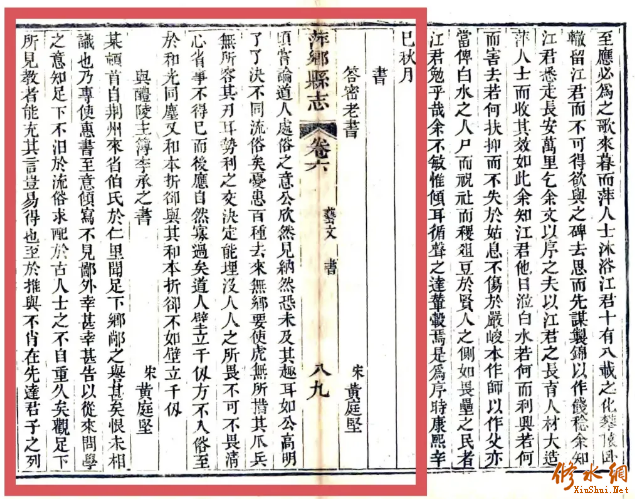 至應必為之歌來暮而萍人士沐浴江君十有八載之化攀轅臥
轍留江君而不可得欲與之碑去思而先謀製錦以作餞嵇余知
江君悉走長安萬里乞余文以序之夫以江君之長育人材大造
萍人士而收其效如此余知江君他日涖白水若何而利興若何
而害去若何扶抑而不失於姑息不傷於嚴峻本作師以作父亦
當俾白水之人尸而祝社而稷俎豆於賢人之側如畏壘之民者
江君勉乎哉余不敏惟傾耳循聲之達輦轂焉是爲序時康熙辛
巳秋月
書
答密老書 宋 黃庭堅
萍鄉縣志 卷六 藝文 書 八九
頃嘗論道人處俗之意公欣然見納然恐未及其趣耳如公高明
了了決不同流俗矣憂患百種去來無鄉要使虎無所措其爪兵
無所容其刃耳勢利之交決定能埋沒人人之所畏不可不畏清
心省事不得已而後應自然寡過矣道人壁立千仞方不入俗至
於和光同塵又和本折卻與其和本折卻不如壁立千仞
與醴陵主簿李承之書 宋 黃庭堅
某頓首自荆州來省伯氏於仁里聞足下鄉鄰之與甚矣恨未相
識也乃專使惠書至意傾寫不見鄙外幸甚幸甚告以從來問學
之意知足下不汨於流俗求配於古人士之不自重久矣觀足下
所見教者能充其言豈易得也至於推與不肖在先達君子之列
修水網
XiuShui.Net